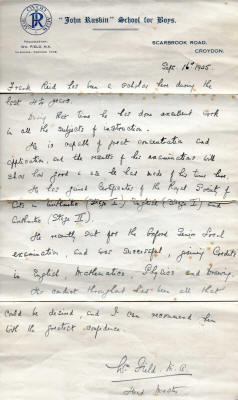 "John Ruskin" School for Boys.
SCARBROOK ROAD,
CROYDON.
WM. FIELD, M.A.
Sept. 16th 1925
Frank Reid has been a scholar here during the
last years.
During that time he has done excellent work
in all the subjects of instruction.
He is capable of great concentration and
application, and the results of his examinations will
show how good use he has made of his time here.
He has gained Certificates of the Royal Society of
Arts in Arithmetic (Stage I) English (Stage I) and
Arithmetic (Stage II).
He recently sat for the Oxford Senior Local
examination, and was successful, gaining Credits
in English, Mathematics, Physics and Drawing.
His conduct throughout has been all that
could be desired, and I can recommend him
with the greatest confidence.
Wm Field. M.A.
Head Master